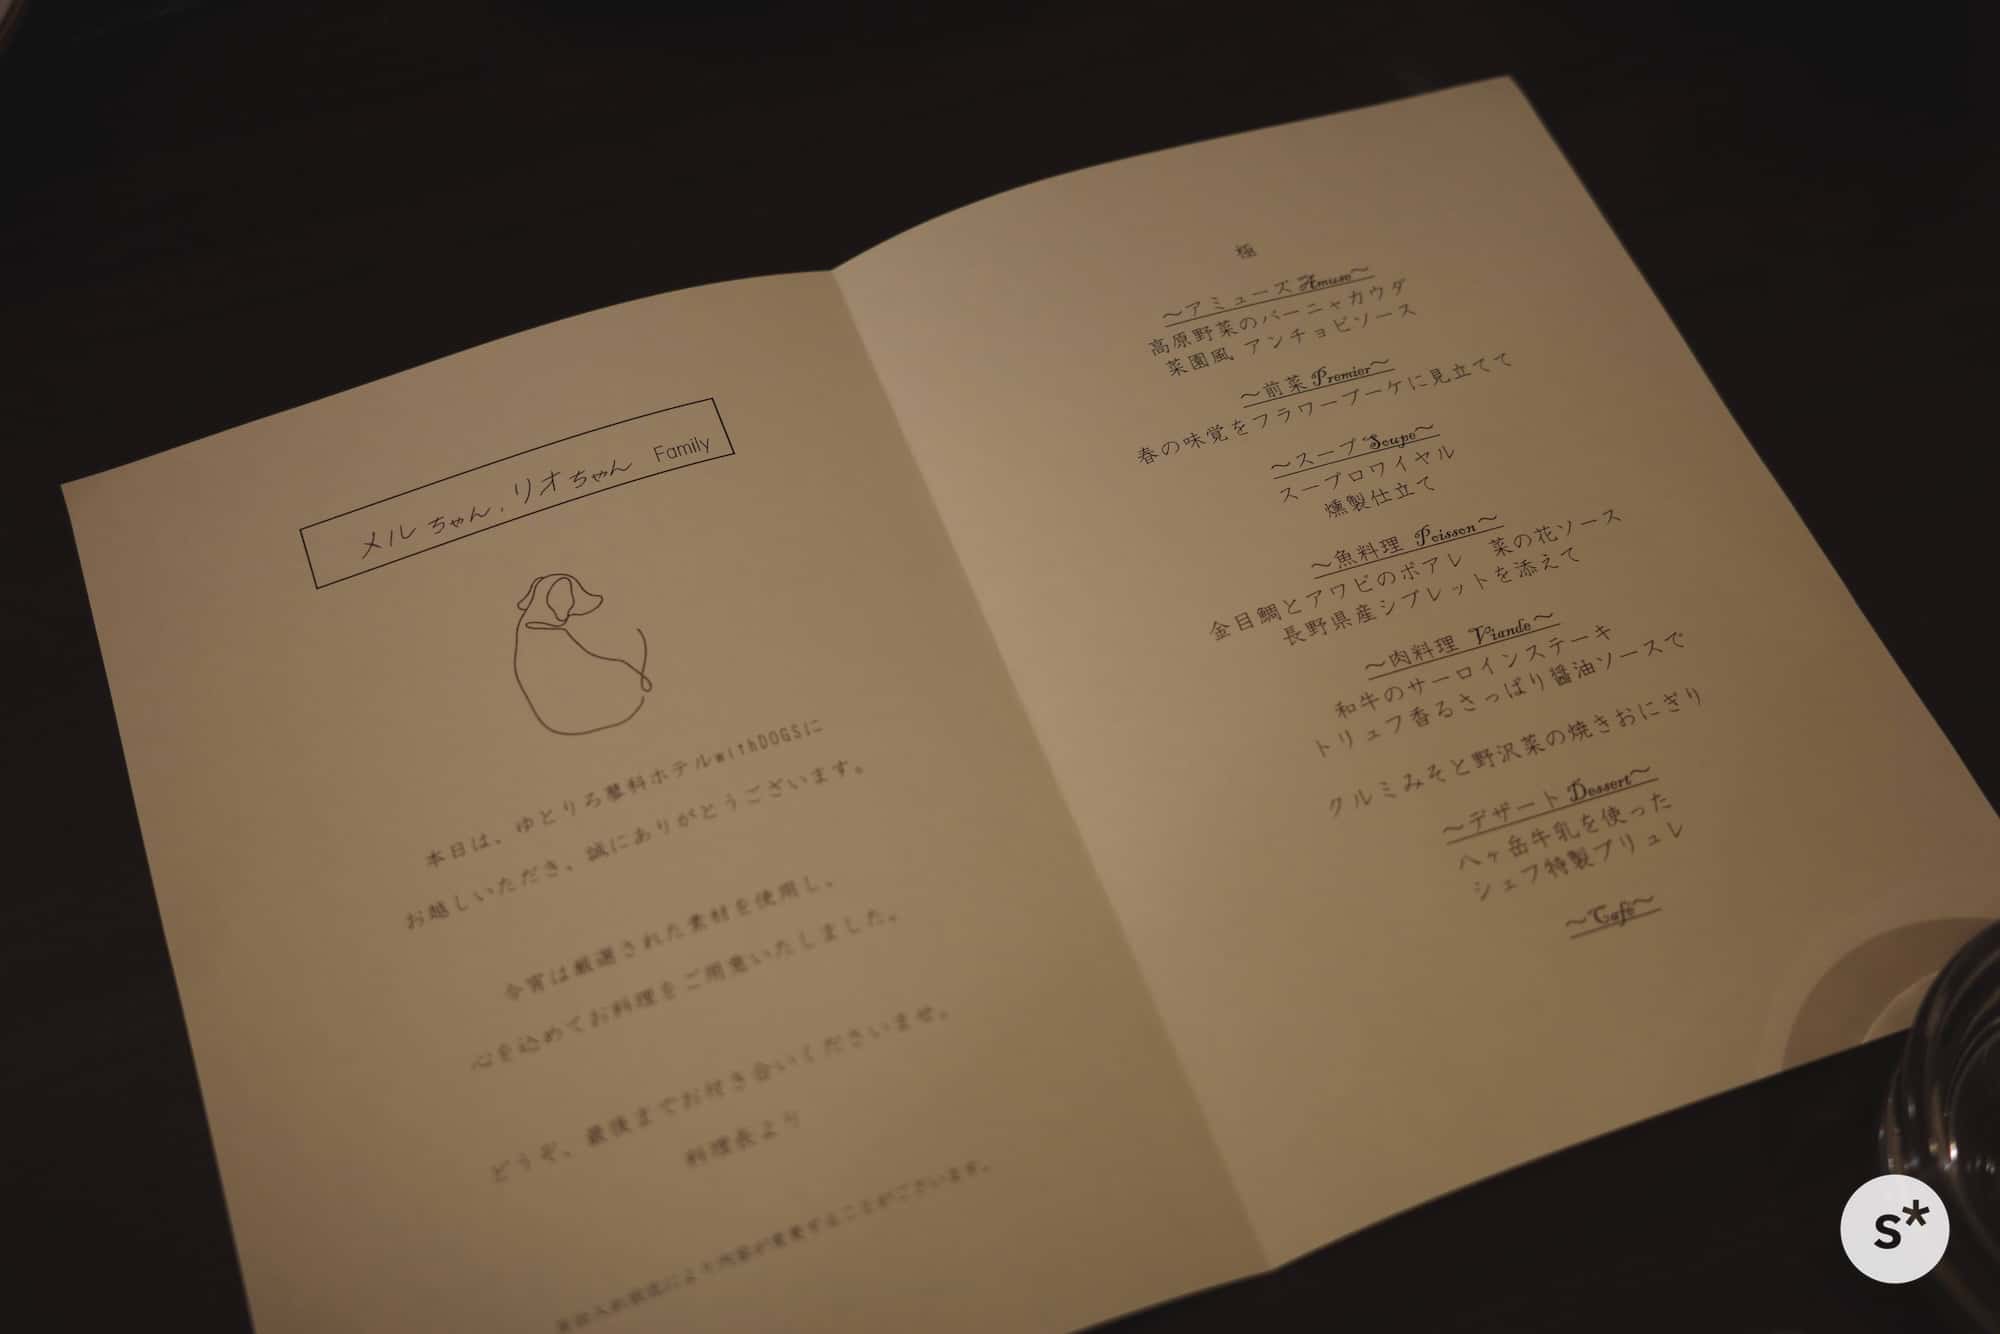 メルちゃん、リオちゃん Family
本日は、ゆとりろ蓼科ホテルwithDOGSに
お越しいただき、誠にありがとうございます。
今宵は厳選された素材を使用し、
心を込めてお料理をご用意いたしました。
どうぞ、最後までお付き合いくださいませ。
料理長より
により内容が変更することがございます。
極
～アミューズ Amuse～
高原野菜のバーニャカウダ
菜園風 アンチョビソース
～前菜 Premier～
春の味覚をフラワーブーケに見立てて
～スープ Soupe～
スープロワイヤル
燻製仕立て
～魚料理 Poisson～
金目鯛とアワビのポアレ 菜の花ソース
長野県産シブレットを添えて
～肉料理 Viande～
和牛のサーロインステーキ
トリュフ香るさっぱり醤油ソースで
クルミみそと野沢菜の焼きおにぎり
～デザート Dessert～
八ヶ岳牛乳を使った
シェフ特製ブリュレ
～Cafe～
s*